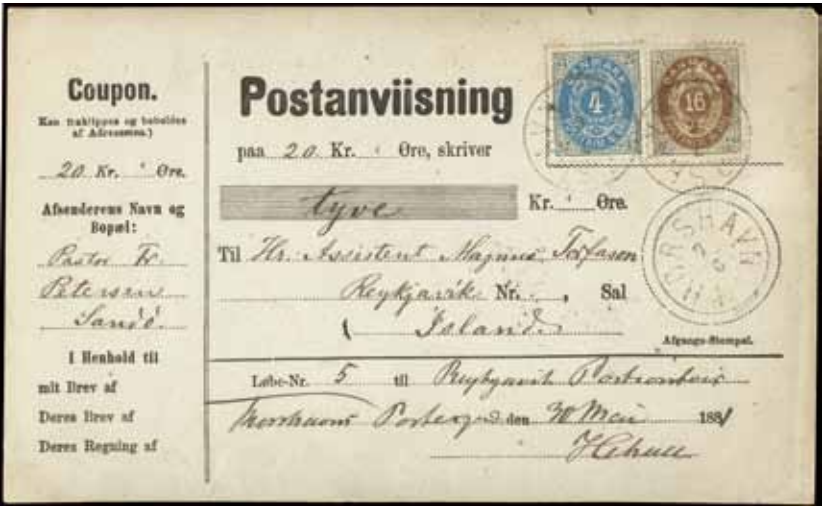 Coupon.
(Kan fraklippes og beholdes
af Adressaten.)
20 Kr. " Øre.
Afsenderens Navn og
Bopæl:
Pastor Fr.
Petersen
Sandö.
I Henhold til
mit Brev af
Deres Brev af
Deres Regning af
Postanviisning
paa 20 Kr. " Øre, skriver
tyve Kr. " Øre.
Til Hr. Assistent Magnus Torfason
Reykjavik Nr. , Sal
Island.
Afgangs-Stempel.
Løbe-Nr. 5 til Reykjavik
den 30 Mai 1881
DANMARK
4
DANMARK
16
THORSHAVN